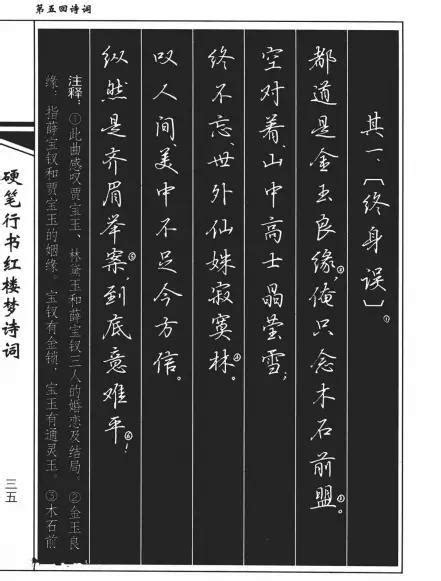 第五回诗词
其一、〔终身误〕①
都道是金玉良缘②,俺只念木石前盟③。
空对着、山中高士晶莹雪;
终不忘、世外仙姝寂寞林④。
叹人间、美中不足今方信。
纵然是齐眉举案⑤,到底意难平⑥!
注释:①此曲感叹贾宝玉、林黛玉和薛宝钗三人的婚恋及结局。②金玉良
缘:指薛宝钗和贾宝玉的姻缘。宝钗有金锁,宝玉有通灵玉。③木石前
硬笔行书红楼梦诗词
三五